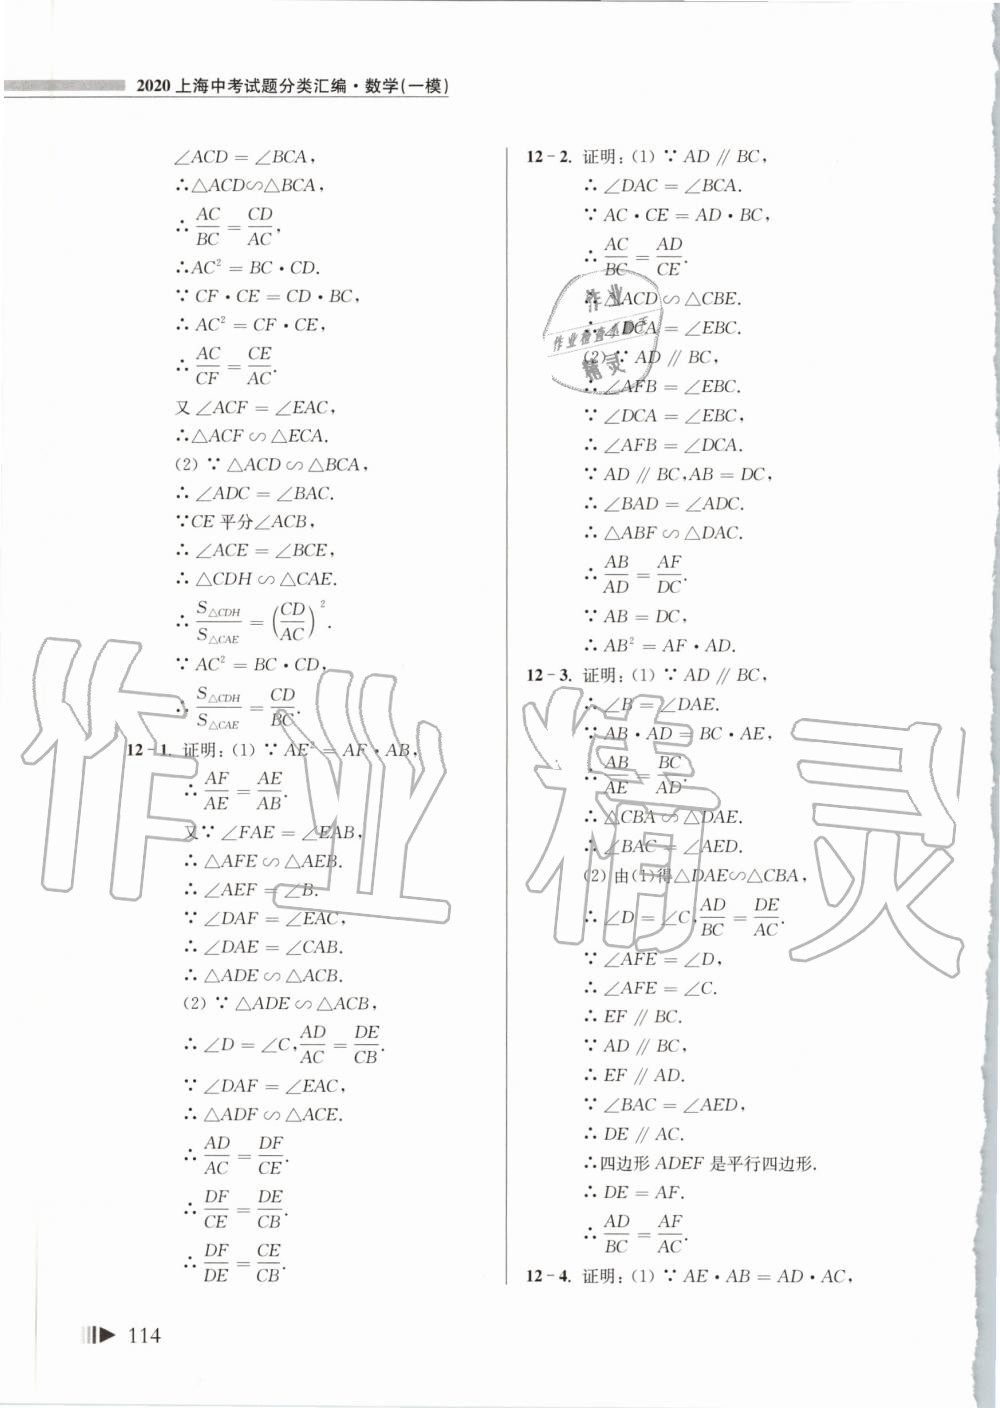 2020 上海中考试题分类汇编·数学(一模)
∠ACD = ∠BCA,
∴△ACD∽△BCA,
∴ AC/BC = CD/AC,
∴AC² = BC·CD.
∵ CF·CE = CD·BC,
∴ AC² = CF·CE,
∴ AC/CF = CE/AC.
又∠ACF = ∠EAC,
∴△ACF ∽ △ECA.
(2) ∵ △ACD ∽ △BCA,
∴ ∠ADC = ∠BAC.
∵CE 平分∠ACB,
∴ ∠ACE = ∠BCE,
∴ △CDH ∽ △CAE.
∴ S△CDH/S△CAE = (CD/AC)².
∵ AC² = BC·CD,
∴ S△CDH/S△CAE = CD/BC.
12-1. 证明:(1) ∵ AE² = AF·AB,
∴ AF/AE = AE/AB.
又∵ ∠FAE = ∠EAB,
∴ △AFE ∽ △AEB.
∴ ∠AEF = ∠B.
∵ ∠DAF = ∠EAC,
∴ ∠DAE = ∠CAB.
∴ △ADE ∽ △ACB.
(2) ∵ △ADE ∽ △ACB,
∴ ∠D = ∠C, AD/AC = DE/CB.
∵ ∠DAF = ∠EAC,
∴ △ADF ∽ △ACE.
∴ AD/AC = DF/CE.
∴ DF/CE = DE/CB.
∴ DF/DE = CE/CB.
12-2. 证明:(1) ∵ AD // BC,
∴ ∠DAC = ∠BCA.
∵ AC·CE = AD·BC,
∴ AC/BC = AD/CE.
∴ △ACD ∽ △CBE.
∴ ∠DCA = ∠EBC.
(2) ∵ AD // BC,
∴ ∠AFB = ∠EBC.
∵ ∠DCA = ∠EBC,
∴ ∠AFB = ∠DCA.
∵ AD // BC,AB = DC,
∴ ∠BAD = ∠ADC.
∴ △ABF ∽ △DAC.
∴ AB/AD = AF/DC.
∵ AB = DC,
∴ AB² = AF·AD.
12-3. 证明:(1) ∵ AD // BC,
∴ ∠B = ∠DAE.
∵ AB·AD = BC·AE,
∴ AB/AE = BC/AD.
∴ △CBA ∽ △DAE.
∴ ∠BAC = ∠AED.
(2) 由(1)得△DAE∽△CBA,
∴ ∠D = ∠C, AD/BC = DE/AC.
∵ ∠AFE = ∠D,
∴ ∠AFE = ∠C.
∴ EF // BC.
∵ AD // BC,
∴ EF // AD.
∵ ∠BAC = ∠AED,
∴ DE // AC.
∴四边形 ADEF 是平行四边形.
∴ DE = AF.
∴ AD/BC = AF/AC.
12-4. 证明:(1) ∵ AE·AB = AD·AC,
114
作业精灵
作业
精灵